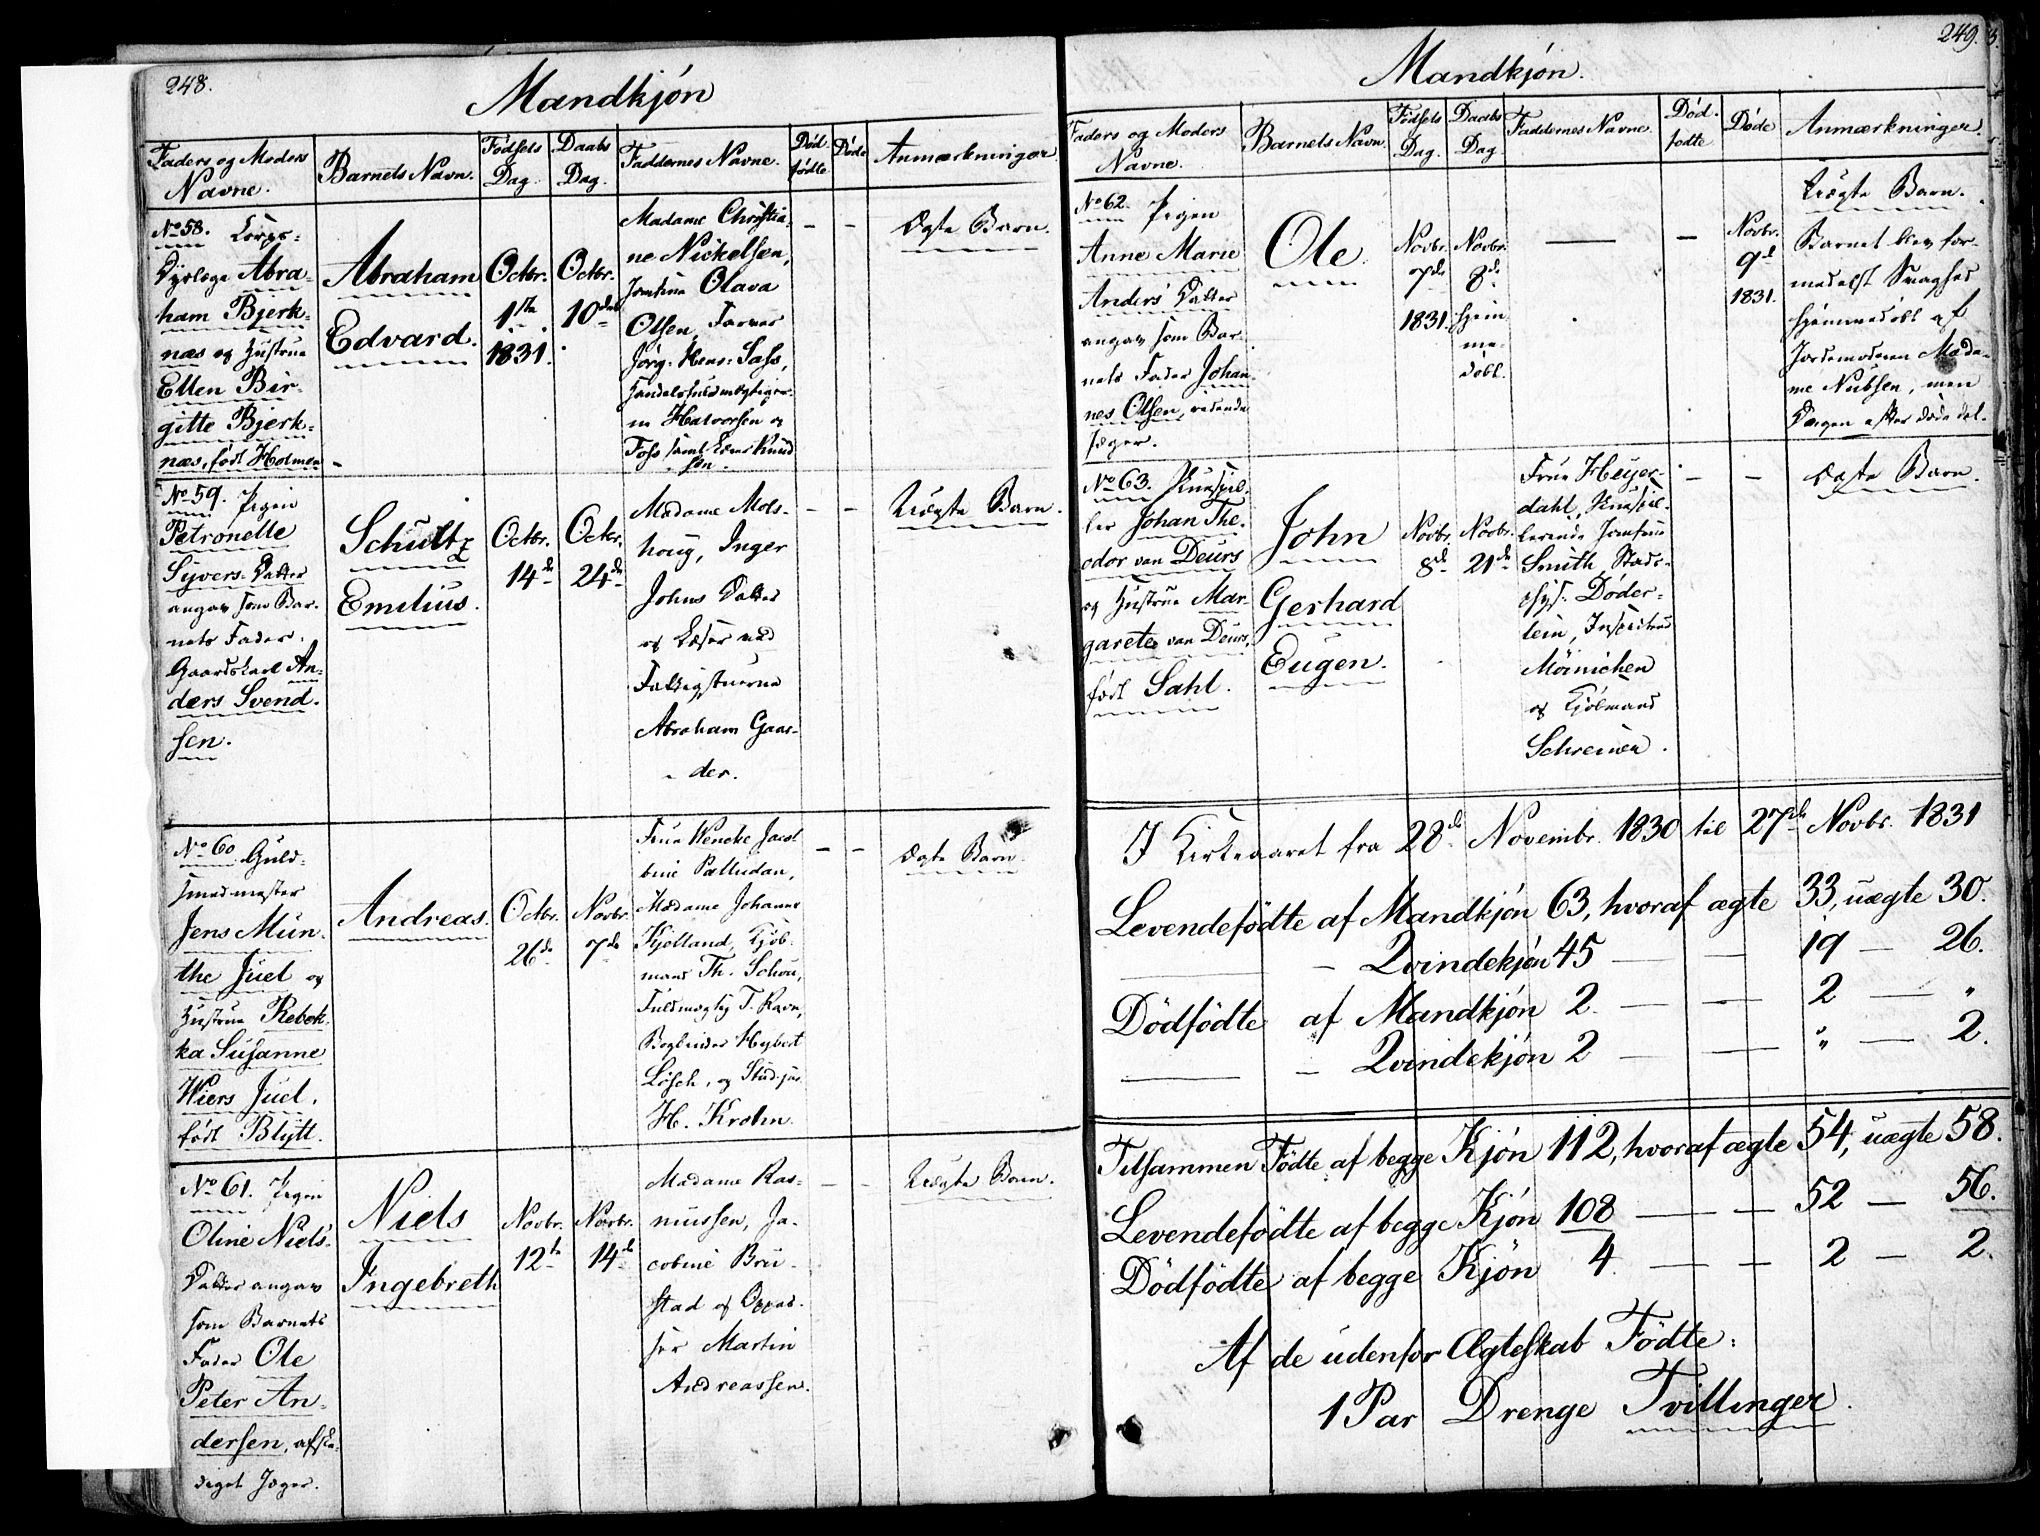 248.
Mandkjön
Faders og Moders
Navne.
Barnets Navn.
Fødsels
Dag.
Daabs
Dag.
Faddernes Navne.
Død-
fødte
Døde
Anmærkninger
No 58. Corps-
Dyrlæge Abra-
ham Bjerk-
næs og Hustrue
Ellen Bir-
gitte Bjerk-
næs, født Holmen
Abraham
Edvard.
Octbr.
1ste
1831.
Octbr.
10de
Madame Christia-
ne Nickelsen,
Jomfrue Olava
Olsen, Farver
Jörg. Hens: Sass,
Handelsfuldmægtiger-
ne Halvorsen og
Foss samt Knud-
sen.
Ægte Barn.
No 59. Pigen
Petronelle
Syvers Datter
angav som Bar-
nets Fader.
Gaardskarl An-
ders Svend-
sen.
Schultz
Emilius.
Octbr.
14de
Octbr.
24de
Madame Mols-
houg, Inger
Johns Datter
og Læser ved
Fattigstuerne
Abraham Gaas-
der.
Uægte Barn.
No 60 Guld-
smedmester
Jens Mun-
the Juel og
Hustrue Rebek-
ka Susanne
Wiers Juel,
født Blytt.
Andreas.
Octbr.
26de
Novbr.
7de
Frue Wencke Jacob-
bine Palludan,
Madame Johanne
Kjolland, Kjöb-
mand Th. Schou,
Fuldmægtig T. Ravn,
Bogbinder Hybert
Lösch, og Stud: jur.
H. Krohn.
Ægte Barn.
No 61. Pigen
Oline Niels-
Datter angav
som Barnets
Fader Ole
Peter An-
dersen, afske-
diget Jæger.
Niels
Ingebreth
Novbr.
12te
Novbr.
14de
Madame Ras-
mussen, Ja-
cobine Bru-
stad og Oppas-
ser Martin
Andreassen.
Uægte Barn.
249.
Mandkjön.
Faders og Moders
Navne.
Barnets Navn.
Fødsels
Dag.
Daabs
Dag.
Faddernes Navne.
Död-
fødte
Døde
Anmærkninger.
No 62. Pigen
Anne Marie
Anders' Datter
angav som Bar-
nets Fader Johan-
nes Olsen, ridende
Jæger.
Ole.
Novbr.
7de
1831.
Novbr.
8de
hjem-
me-
døbt.
Novbr.
9de
1831.
Uægte Barn.
Barnet blev for-
medelst Svaghed
hjemmedøbt af
Jordemoderen Mada-
me Nubsen, men
Dagen efter døde det.
No 63. Kunspil-
ler Johan The-
odor van Deurs
og Hustrue Mar-
garete van Deurs,
født Sahl.
John
Gerhard
Eugen.
Novbr.
8de
Novbr.
21de
Frue Heyer-
dahl, Kunspil-
lerinde Jomfrue
Smith, Stads-
phys: Døder-
lein, Inspecteur
Möinichen
og Kjöbmand
Schreiner.
Ægte Barn.
I Kirkeaaret fra 28de Novembr. 1830 til 27de Novbr. 1831
Levendefödte af Mandkjön 63, hvoraf ægte 33, uægte 30.
— Qvindekjön 45 — — 19 — 26.
Dödfödte af Mandkjön 2. — — 2 — "
— Qvindekjön 2 — — " — 2.
Tilsammen Födte af begge Kjön 112, hvoraf ægte 54, uægte 58.
Levendefödte af begge Kjön 108 — — 52 — 56.
Dödfödte af begge Kjön 4. — — 2 — 2.
Af de udenfor Ægteskab Födte:
1 Par Drenge Tvillinger.